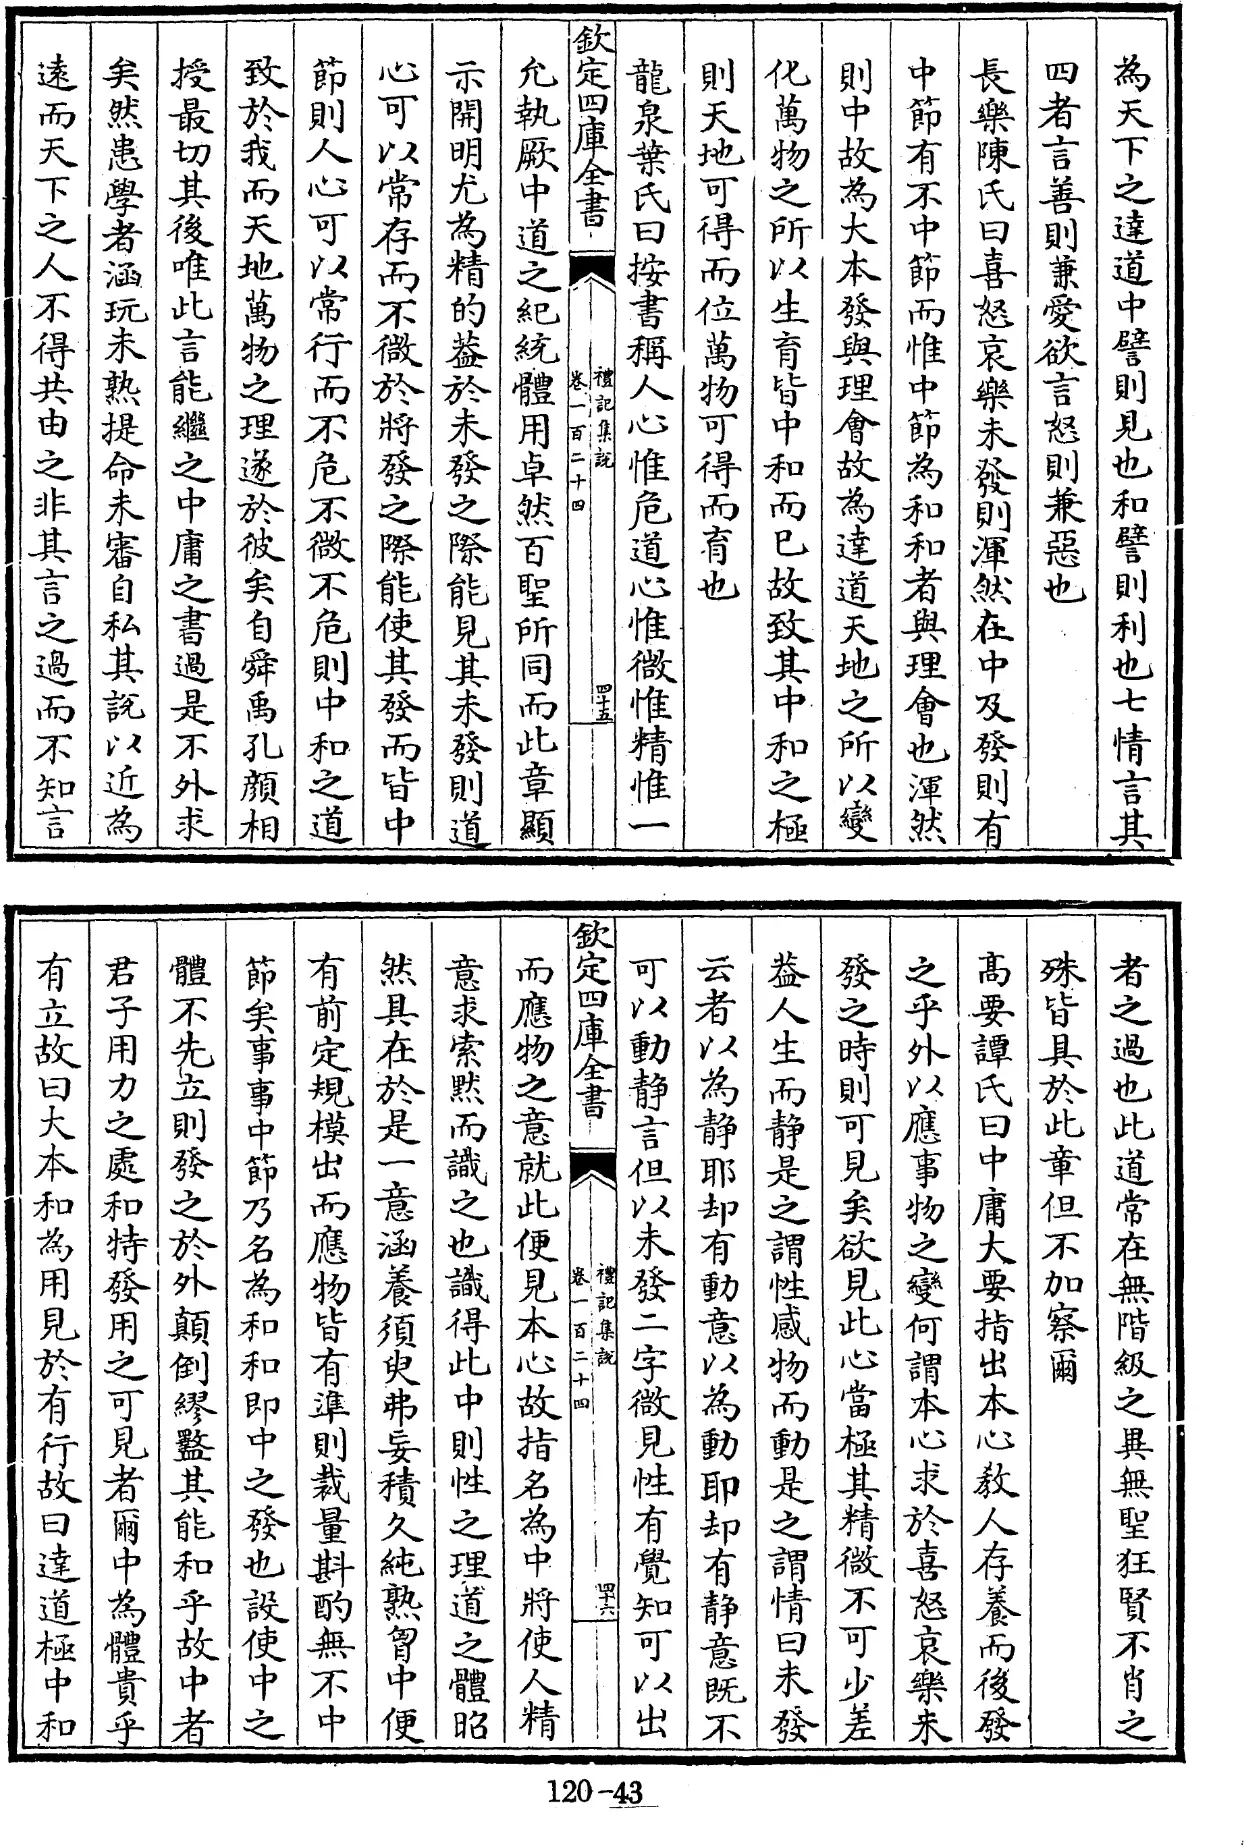 為天下之達道中譬則見也和譬則利也七情言其
四者言善則兼愛欲言怒則兼惡也
長樂陳氏曰喜怒哀樂未發則渾然在中及發則有
中節有不中節而惟中節為和和者與理會也渾然
則中故為大本發與理會故為達道天地之所以變
化萬物之所以生育皆中和而已故致其中和之極
則天地可得而位萬物可得而育也
龍泉葉氏曰按書稱人心惟危道心惟微惟精惟一
欽定四庫全書
禮記集說
卷一百二十四
四十五
允執厥中道之紀統體用卓然百聖所同而此章顯
示開明尤為精的葢於未發之際能見其未發則道
心可以常存而不微於將發之際能使其發而皆中
節則人心可以常行而不危不微不危則中和之道
致於我而天地萬物之理遂於彼矣自舜禹孔顔相
授最切其後唯此言能繼之中庸之書過是不外求
矣然患學者涵玩未熟提命未審自私其說以近為
遠而天下之人不得共由之非其言之過而不知言
者之過也此道常在無階級之異無聖狂賢不肖之
殊皆具於此章但不加察爾
髙要譚氏曰中庸大要指出本心教人存養而後發
之乎外以應事物之變何謂本心求於喜怒哀樂未
發之時則可見矣欲見此心當極其精微不可少差
葢人生而静是之謂性感物而動是之謂情曰未發
云者以為静耶却有動意以為動耶却有静意既不
可以動静言但以未發二字微見性有覺知可以出
欽定四庫全書
禮記集說
卷一百二十四
四十六
而應物之意就此便見本心故指名為中將使人精
意求索黙而識之也識得此中則性之理道之體昭
然具在於是一意涵養須臾弗妄積久純熟胷中便
有前定規模出而應物皆有準則裁量斟酌無不中
節矣事事中節乃名為和和即中之發也設使中之
體不先立則發之於外顛倒繆盭其能和乎故中者
君子用力之處和特發用之可見者爾中為體貴乎
有立故曰大本和為用見於有行故曰達道極中和
120-43